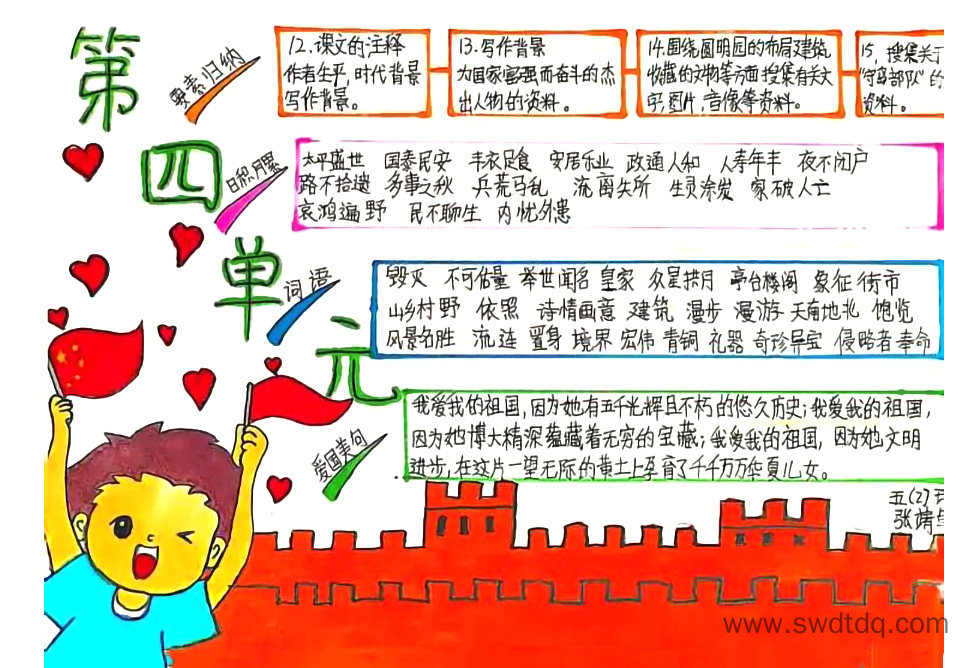 第四单元
要素归纳
12.课文的注释
作者生平,时代背景
写作背景。
13.写作背景
为国家富强而奋斗的杰
出人物的资料。
14.围绕圆明园的布局、建筑,
收藏的文物等方面搜集有关文
字,图片,音像等资料。
15,搜集关于
"守岛部队"的
资料。
日积月累
太平盛世 国泰民安 丰衣足食 安居乐业 政通人和 人寿年丰 夜不闭户
路不拾遗 多事之秋 兵荒马乱 流离失所 生灵涂炭 家破人亡
哀鸿遍野 民不聊生 内忧外患
词语
毁灭 不可估量 举世闻名 皇家 众星拱月 亭台楼阁 象征 街市
山乡村野 依照 诗情画意 建筑 漫步 漫游 天南地北 饱览
风景名胜 流连 置身 境界 宏伟 青铜 礼器 奇珍异宝 侵略者 奉命
爱国美句
我爱我的祖国,因为她有五千光辉且不朽的悠久历史;我爱我的祖国,
因为她博大精深蕴藏着无穷的宝藏;我爱我的祖国,因为她文明
进步,在这片一望无际的黄土上孕育了千千万万华夏儿女。
五(2)
张靖
www.swdtdq.com